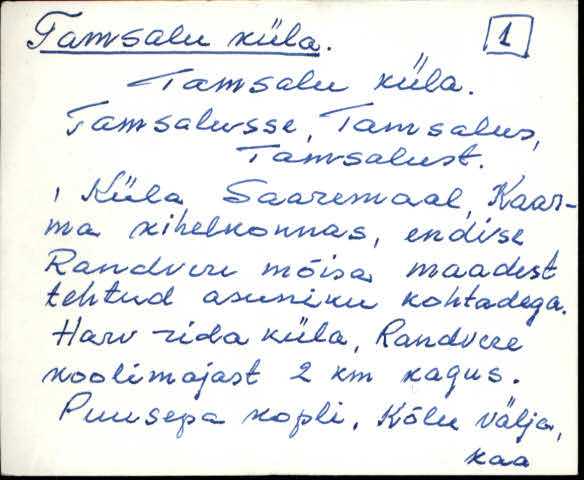 Tamsalu küla. 1
Tamsalu küla.
Tamsalusse, Tamsalus,
Tamsalust.
, Küla Saaremaal, Kaar-
ma kihelkonnas, endise
Randvere mõisa maadest
tehtud asuniku kohtadega.
Harv rida küla, Randvere
koolimajast 2 km kagus.
Puusepa kopli, Kõlu välja,
kaa